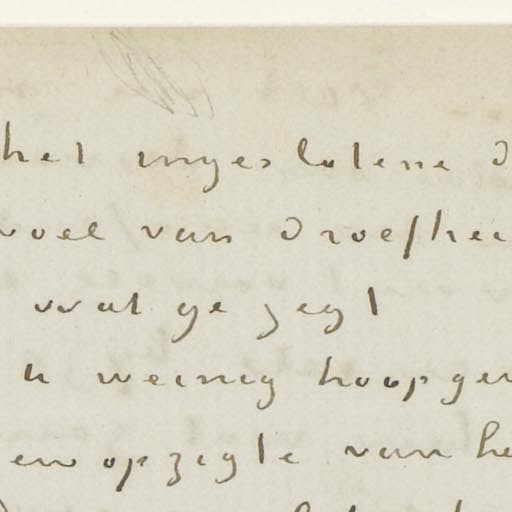 het ingeslotene d
voel van droefhei
wat ge zegt
u weinig hoopgev
en opzigte van he